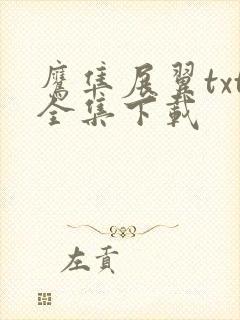 鹰隼展翼txt
全集下载
左贡